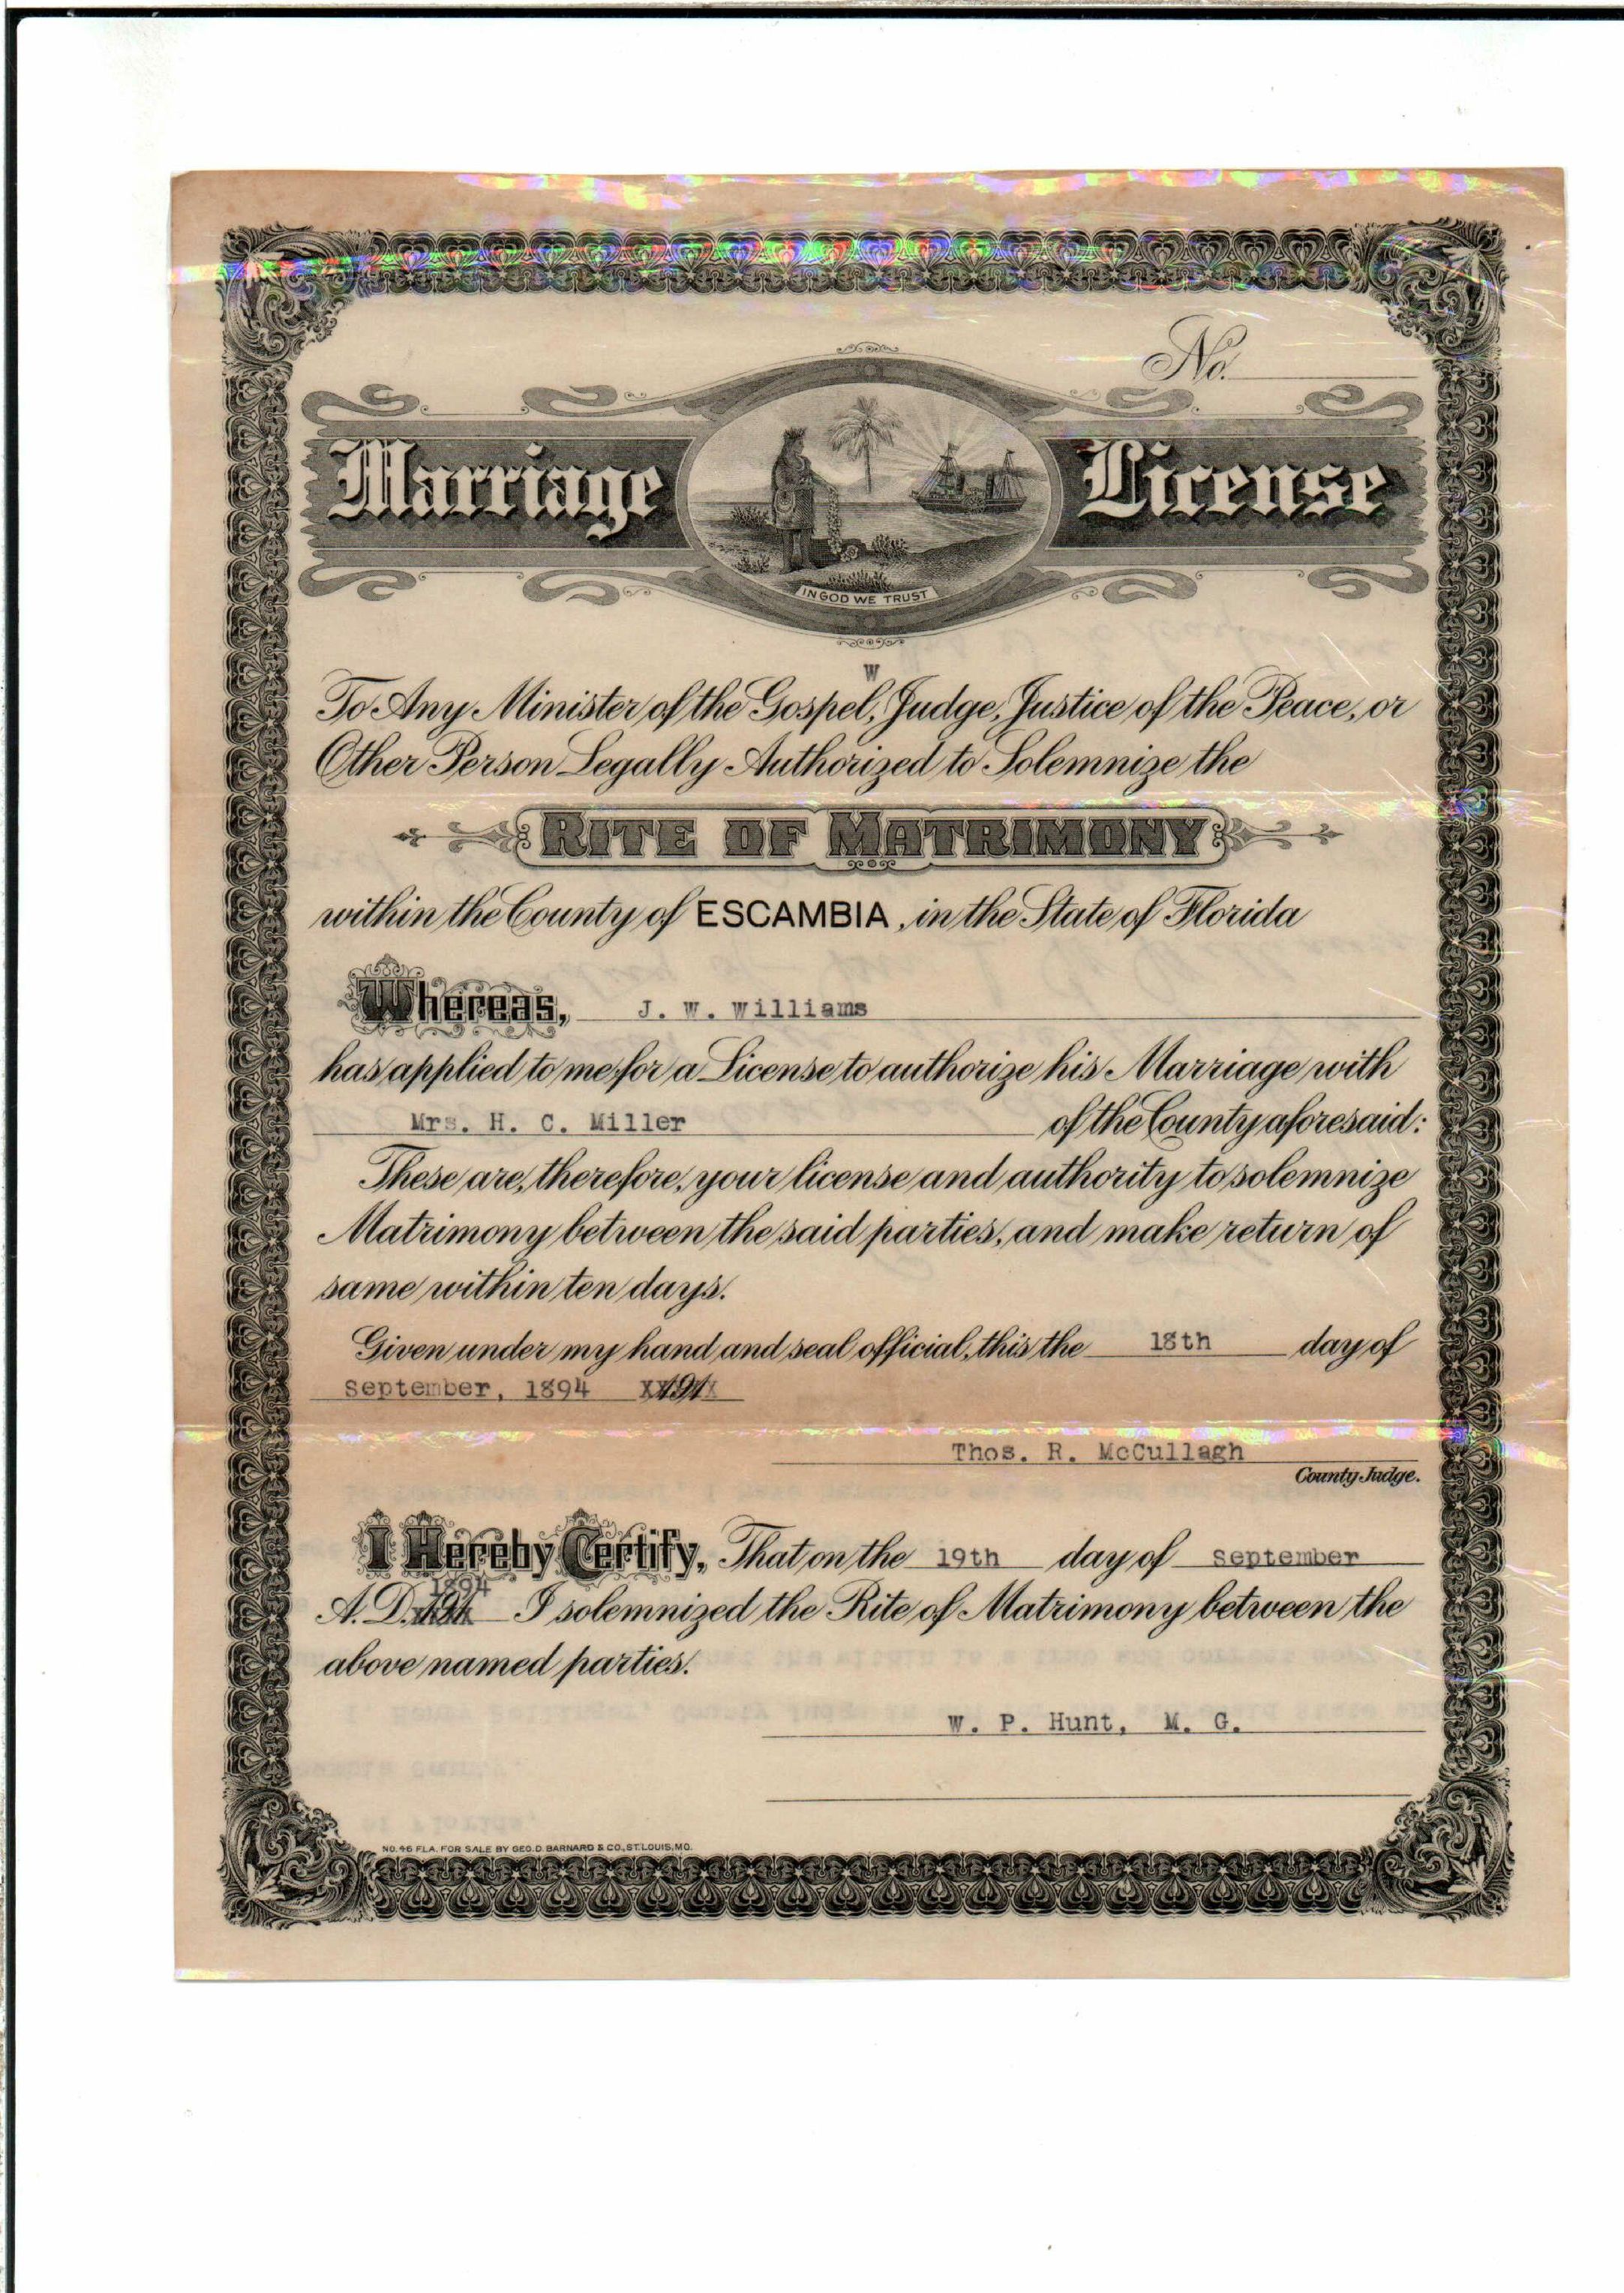 No.
Marriage License
IN GOD WE TRUST
W
To Any Minister of the Gospel, Judge, Justice of the Peace, or
Other Person Legally Authorized to Solemnize the
RITE OF MATRIMONY
within the County of ESCAMBIA, in the State of Florida
Whereas, J. W. Williams
has applied to me for a License to authorize his Marriage with
Mrs. H. C. Miller of the County aforesaid:
These are, therefore, your license and authority to solemnize
Matrimony between the said parties, and make return of
same within ten days.
Given under my hand and seal official, this the 18th day of
September, 1894 XX191XX
Thos. R. McCullagh
County Judge.
I Hereby Certify, That on the 19th day of September
1894
A. D. 191 I solemnized the Rite of Matrimony between the
above named parties.
W. P. Hunt, M. G.
NO. 46 FLA. FOR SALE BY GEO. D. BARNARD & CO., ST. LOUIS, MO.